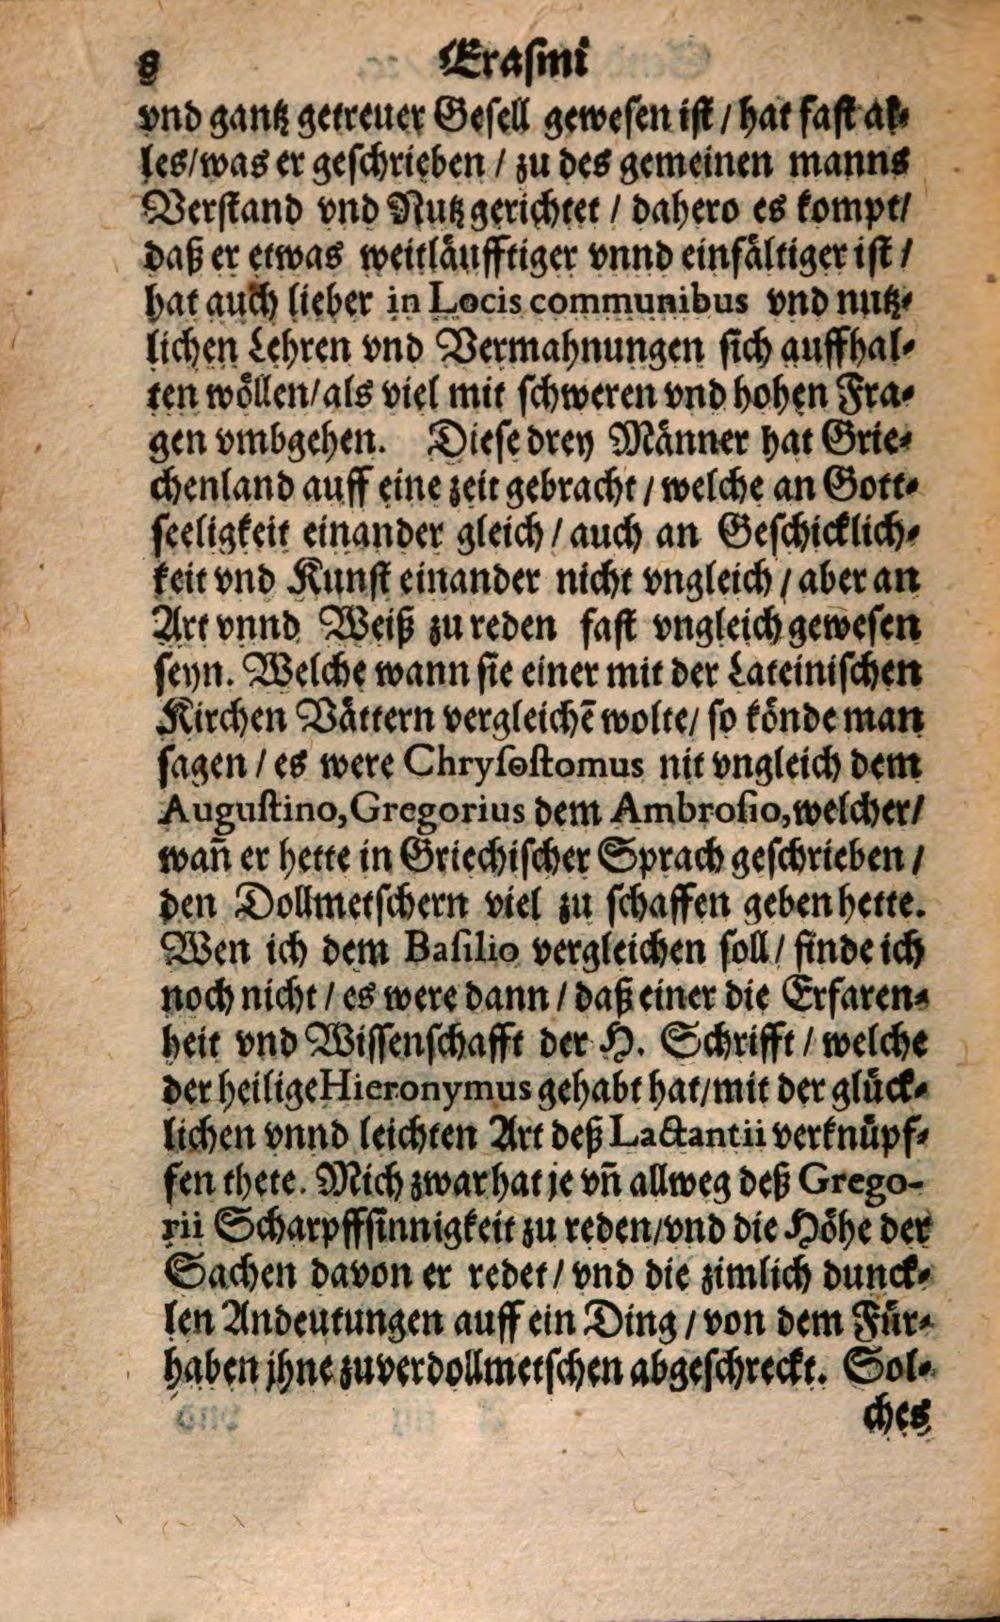 8 Erasmi
vnd gantz getreuer Gesell gewesen ist / hat fast al⸗
les/was er geschrieben / zu des gemeinen manns
Verstand vnd Nutz gerichtet / dahero es kompt/
daß er etwas weitläufftiger vnnd einfältiger ist /
hat auch lieber in Locis communibus vnd nutz⸗
lichen Lehren vnd Vermahnungen sich auffhal⸗
ten wöllen/als viel mit schweren vnd hohen Fra⸗
gen vmbgehen. Diese drey Männer hat Grie⸗
chenland auff eine zeit gebracht / welche an Gott⸗
seeligkeit einander gleich / auch an Geschicklich⸗
keit vnd Kunst einander nicht vngleich / aber an
Art vnnd Weiß zu reden fast vngleich gewesen
seyn. Welche wann sie einer mit der Lateinischen
Kirchen Vättern vergleichē wolte/ so könde man
sagen / es were Chrysostomus nit vngleich dem
Augustino, Gregorius dem Ambrosio, welcher/
wañ er hette in Griechischer Sprach geschrieben /
den Dollmetschern viel zu schaffen geben hette.
Wen ich dem Basilio vergleichen soll / finde ich
noch nicht / es were dann / daß einer die Erfaren⸗
heit vnd Wissenschafft der H. Schrifft / welche
der heilige Hieronymus gehabt hat/mit der glück⸗
lichen vnnd leichten Art deß Lactantii verknüpf⸗
fen thete. Mich zwar hat je vñ allweg deß Grego-
rii Scharpffsinnigkeit zu reden/vnd die Höhe der
Sachen davon er redet / vnd die zimlich dunck⸗
len Andeutungen auff ein Ding / von dem Für⸗
haben jhne zuverdollmetschen abgeschreckt. Sol⸗
ches